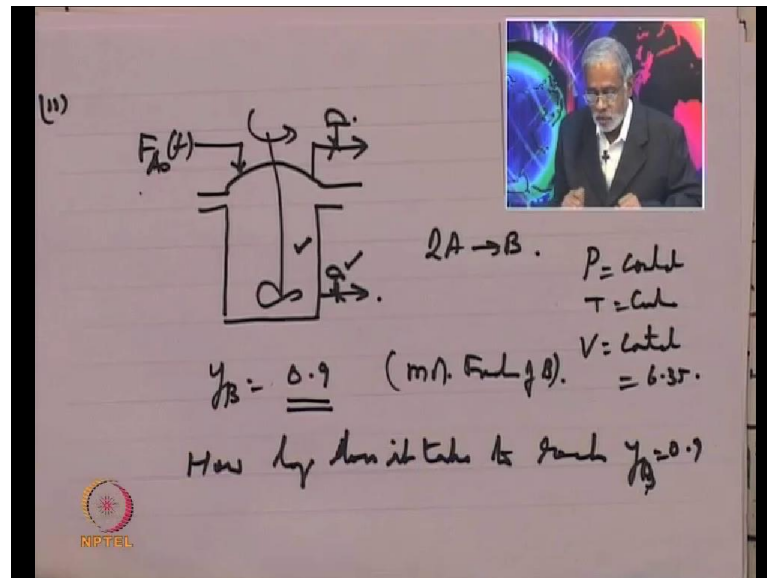 (11)
F_A0(t)
2A → B.
P = Const
T = Cons
V = Const
= 6.35.
y_B = 0.9 (mol. Frac of B).
How long does it take to reach y_B = 0.9
NPTEL